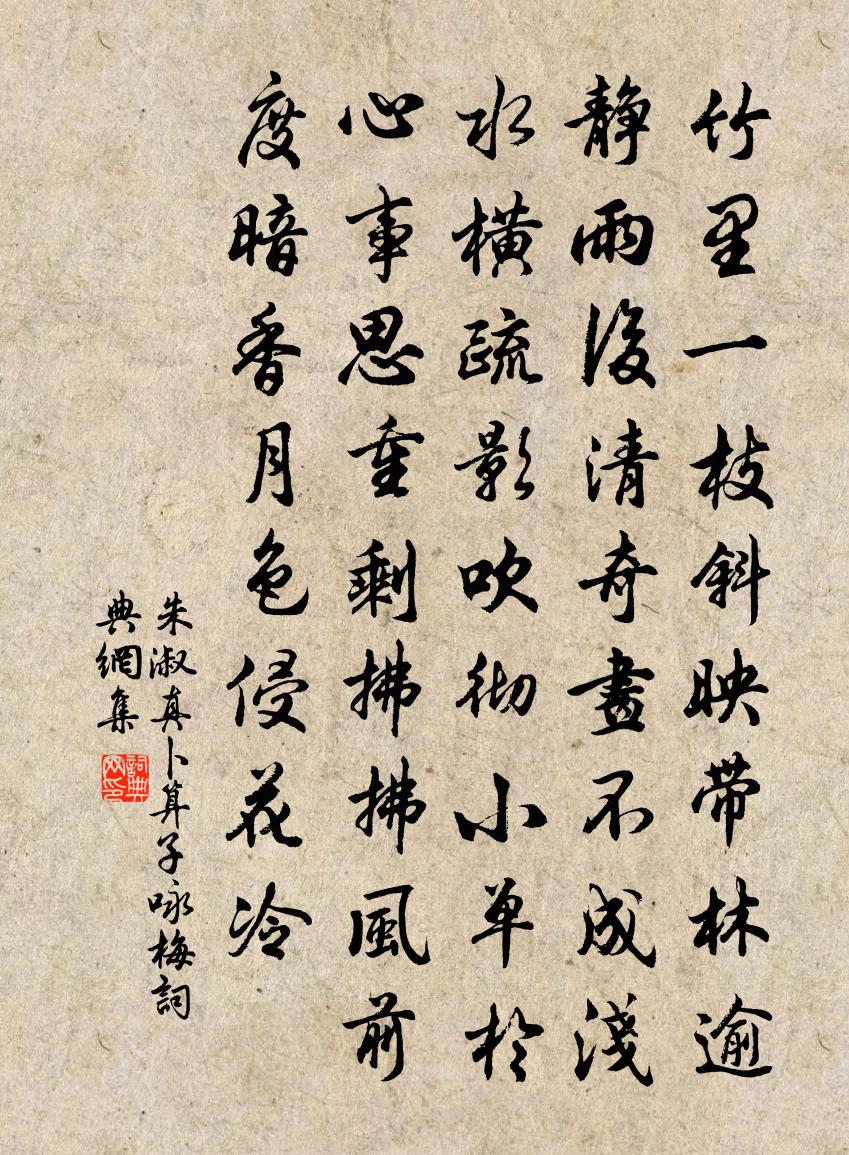 竹里一枝斜映帶林逾
靜雨後清奇畫不成淺
水橫疏影吹彻小单於
心事思重剩拂拂風前
度暗香月色侵花冷
朱淑真卜算子咏梅詞
典網集
詞典网印